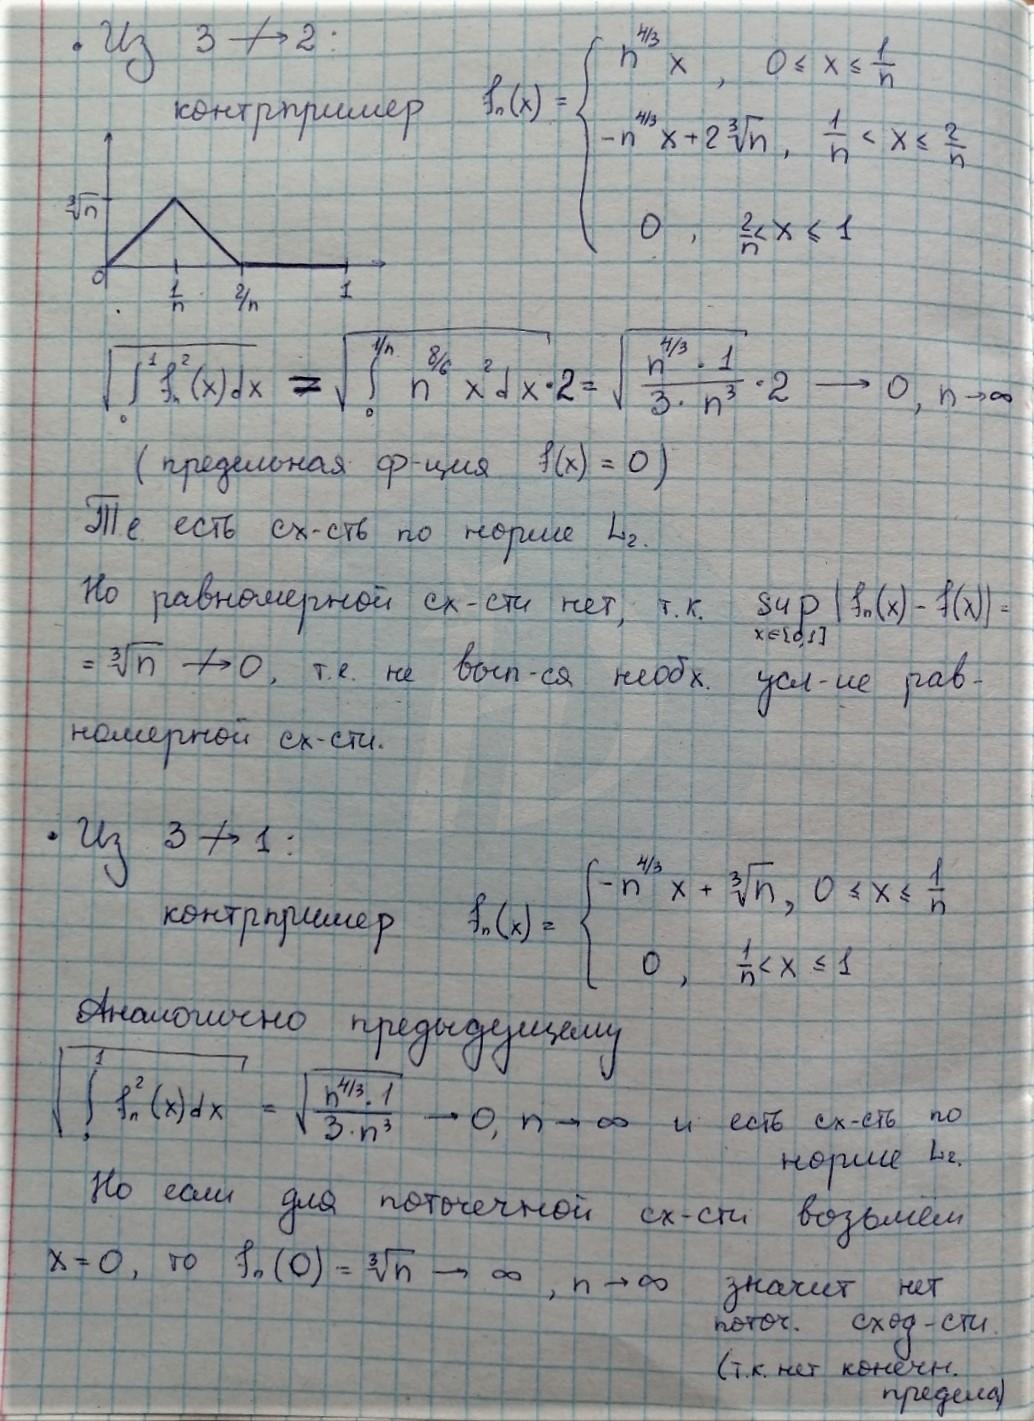 • Из 3 ↛ 2:
контрпример fₙ(x) = { n^{4/3} x , 0 ≤ x ≤ 1/n
-n^{4/3} x + 2∛n , 1/n < x ≤ 2/n
0 , 2/n < x ≤ 1
∛n
0 1/n 2/n 1
√(∫₀¹ fₙ²(x)dx) = √(∫₀^{1/n} n^{8/6} x² dx · 2) = √((n^{4/3} · 1)/(3 · n³)) · 2 → 0, n → ∞
(предельная ф-ция f(x) = 0)
Те есть сх-сть по норме L₂.
Но равномерной сх-сти нет, т.к. sup_{x∈[0,1]} |fₙ(x) - f(x)| =
= ∛n ↛ 0, т.е. не вып-ся необх. усл-ие рав-
номерной сх-сти.
• Из 3 ↛ 1:
контрпример fₙ(x) = { -n^{4/3} x + ∛n, 0 ≤ x ≤ 1/n
0 , 1/n < x ≤ 1
Аналогично предыдущему
√(∫₀¹ fₙ²(x)dx) = √((n^{4/3} · 1)/(3 · n³)) → 0, n → ∞ и есть сх-сть по
норме L₂.
Но если для поточечной сх-сти возьмём
x = 0, то fₙ(0) = ∛n → ∞, n → ∞ значит нет
поточ. сход-сти.
(т.к. нет конечн.
предела)